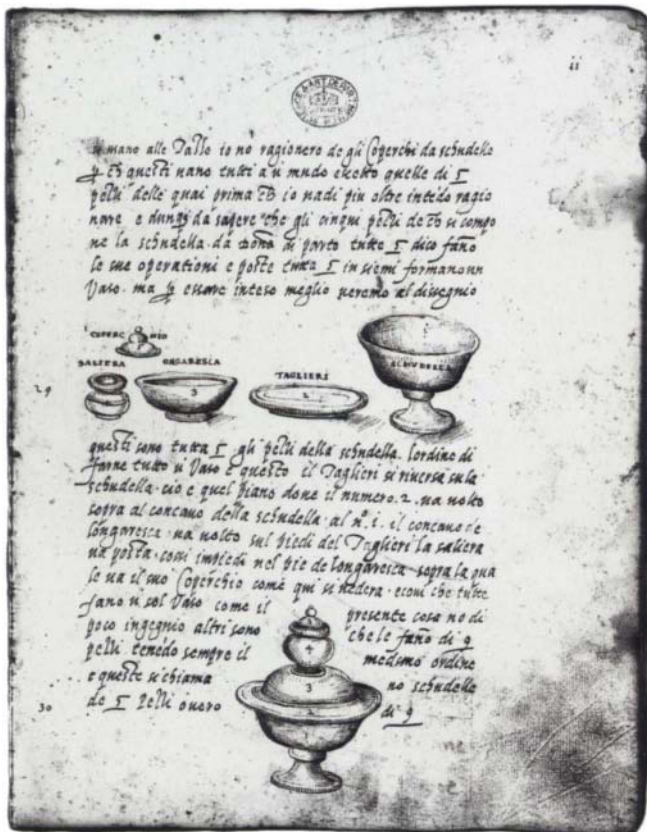 ii
umano alle Vallo io no ragionero de gli Coperchi da schudelle
questi uano tutti a ũ mudo ecetto quelle di 5
pezzi delle quai prima io uadi piu oltre intẽdo ragio
nare e dunqȝ da sapere che gli cinqui pezzi de si compo
ne la schudella da dõna di parto tutte 5 dico fano
le sue operationi e poste tutta 5 in siemi formano un
Vaso. ma essare inteso meglio ueremo al dissegnio
COPERCHIO
SALIERA ONGARESCA
TAGLIERI
SCHUDELLA
3
2
29
questi sono tutta 5 gli pezzi della schudella. lordine di
farne tutto ũ Vaso e questo il Taglieri si riuersa su la
schudella. cio e quel piano doue il numero. 2. ua uolto
sopra al concauo della schudella. al nº. 1. il concauo de
longaresca. ua uolto sul piedi del Taglieri la saliera
ua posta. cossi impiedi nel pie de longaresca. sopra la qua
le ua il suo Coperchio come qui si uedera. ecoui che tutte
fano ũ sol Vaso come il presente cosa no di
poco ingegnio altri sono che le fano di 9
pezzi tenẽdo sempre il medsmo ordine
e queste si chiama no schudelle
de 5 Pezzi ouero di 9
30
4
3
2
1